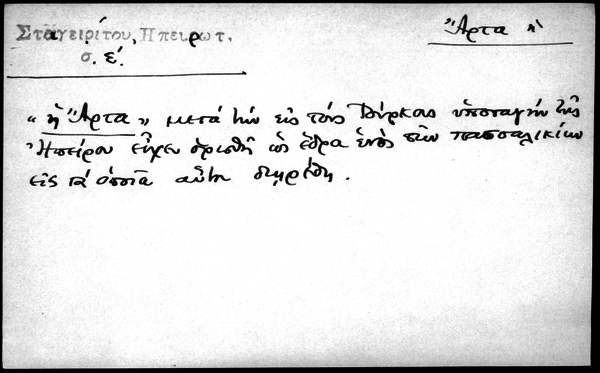 Σταγειρίτου, Ηπειρωτ.
σ. ε΄.
Ἄρτα ἡ
«ἡ Ἄρτα» μετά τήν εἰς τούς Τούρκους ὑποταγήν τῆς
Ἠπείρου εἶχεν ὁρισθῆ ὡς ἕδρα ἑνός τῶν πασσαλικίων
εἰς τά ὁποῖα αὕτη διῃρέθη.